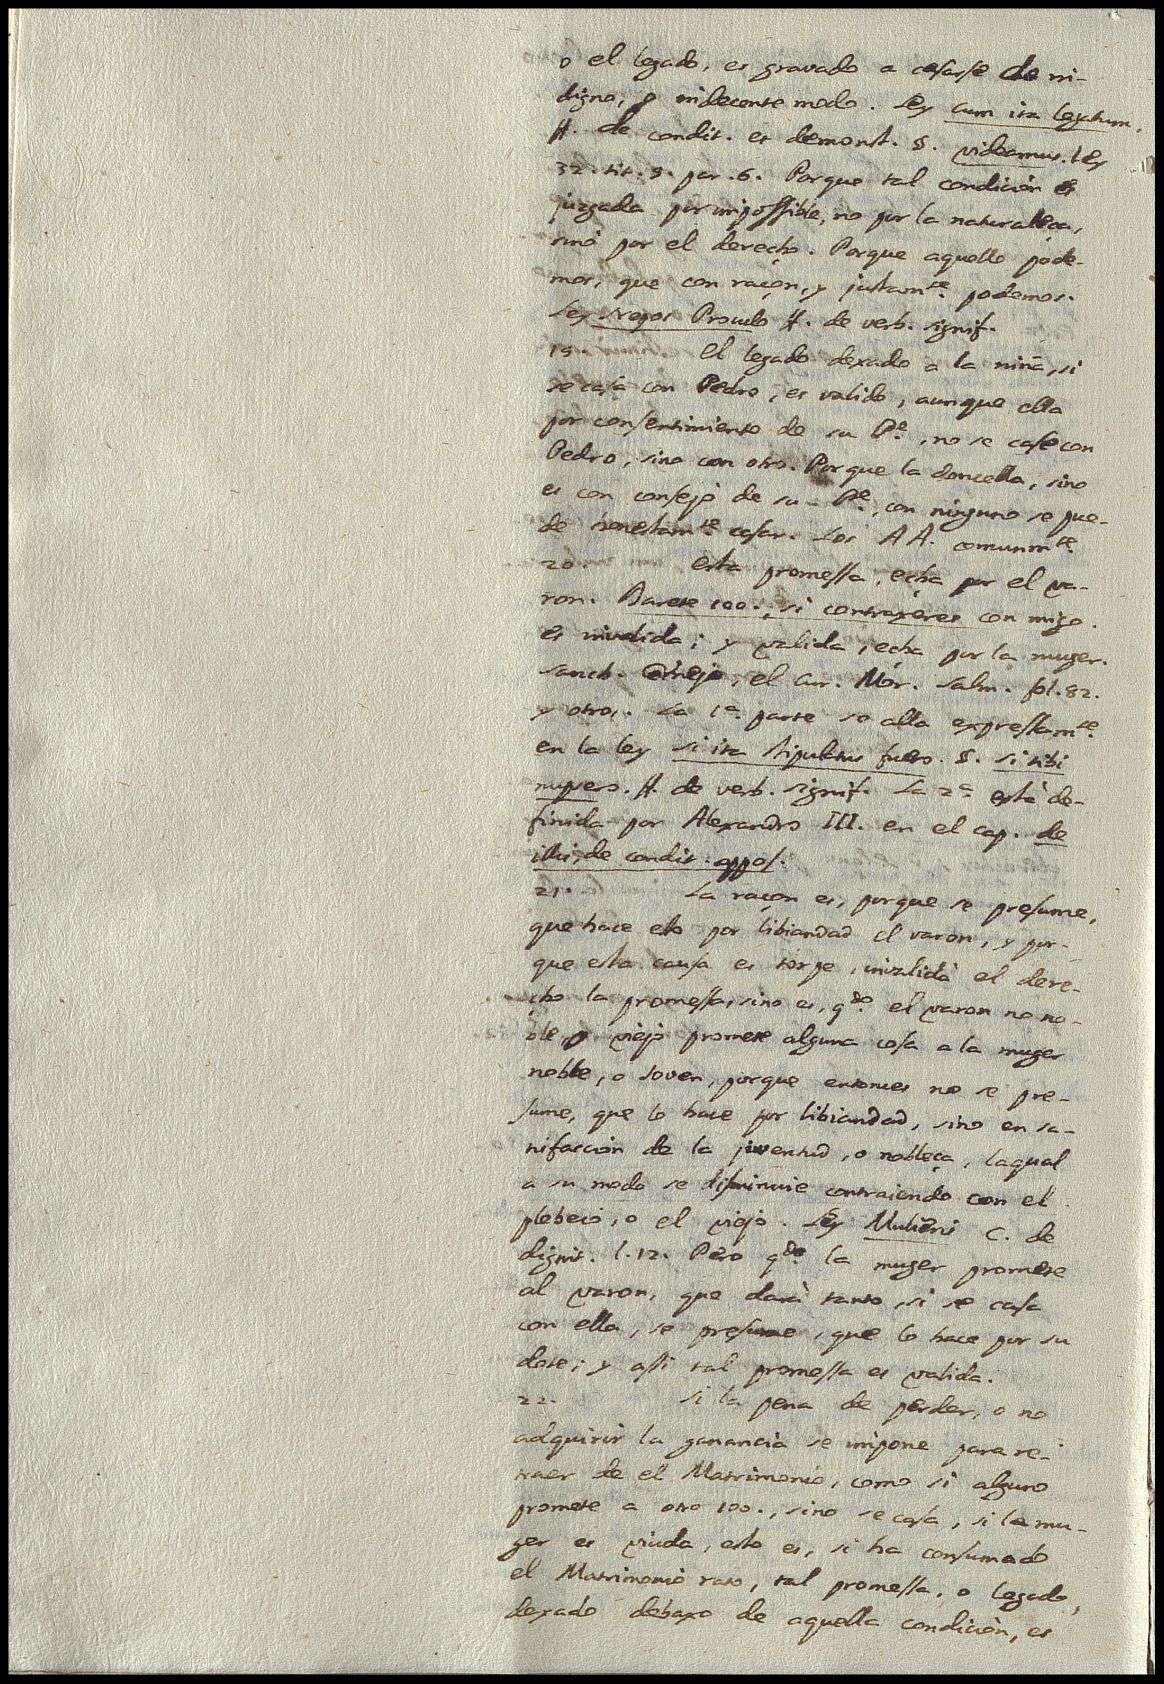 o el legado, es gravado a casarse de in-
digno, o indecente modo. Ley cum ita legatum.
ff. de condit. et demonst. §. videamus. Ley
32. tit. 9. par. 6. Porque tal condición es
juzgada por impossible, no por la naturaleça,
sinó por el derecho. Porque aquello pode-
mos, que con raçon, y justamte. podemos.
Ley Nepos Proculo ff. de verb. signif.
19. El legado dexado a la niña, si
se casa con Pedro, es valido, aunque ella
por consentimiento de su Pe., no se case con
Pedro, sino con otro. Porque la doncella, sino
es con consejo de su Pe., con ninguno se pue-
de honestamte. casar. Los AA. comunmte.
20. esta promessa, echa por el va-
ron. Darete 100., si contraxeres con migo.
es invalida; y valida, echa por la muger.
Sanch. Cornejo, el Cur. Mor. Salm. fol. 82.
y otros. La 1a. parte se alla expressamte.
en la ley si ita stipulatus fuero. §. si tibi
nupero. ff. de verb. signif. La 2a está de-
finida por Alexandro III. en el cap. de
illis, de condit. appos.
21. La raçon es, porque se presume,
que hace esto por libiandad el varon, y por-
que esta causa es torpe, invalidà el dere-
cho la promessa, sino es, qdo. el varon no no-
ble, o viejo promete alguna cosa a la muger
noble, o Joven, porque entonces no se pre-
sume, que lo hace por libiandad, sino en sa-
tisfacción de la juventud, o nobleça, laqual
a su modo se disminuie contraiendo con el
plebeio, o el viejo. Ley Mulieri C. de
dignit. l. 12. Pero qdo. la muger promete
al varon, que darà tanto, si se casa
con ella, se presume, que lo hace por su
dote; y assi tal promessa es valida.
22. Si la pena de perder, o no
adquirir la ganancia se impone para re-
traer de el Matrimonio, como si alguno
promete a otro 100., sino se casa, si la mu-
ger es viuda, esto es, si ha consumado
el Matrimonio rato, tal promessa, o legado,
dexado debaxo de aquella condición, es